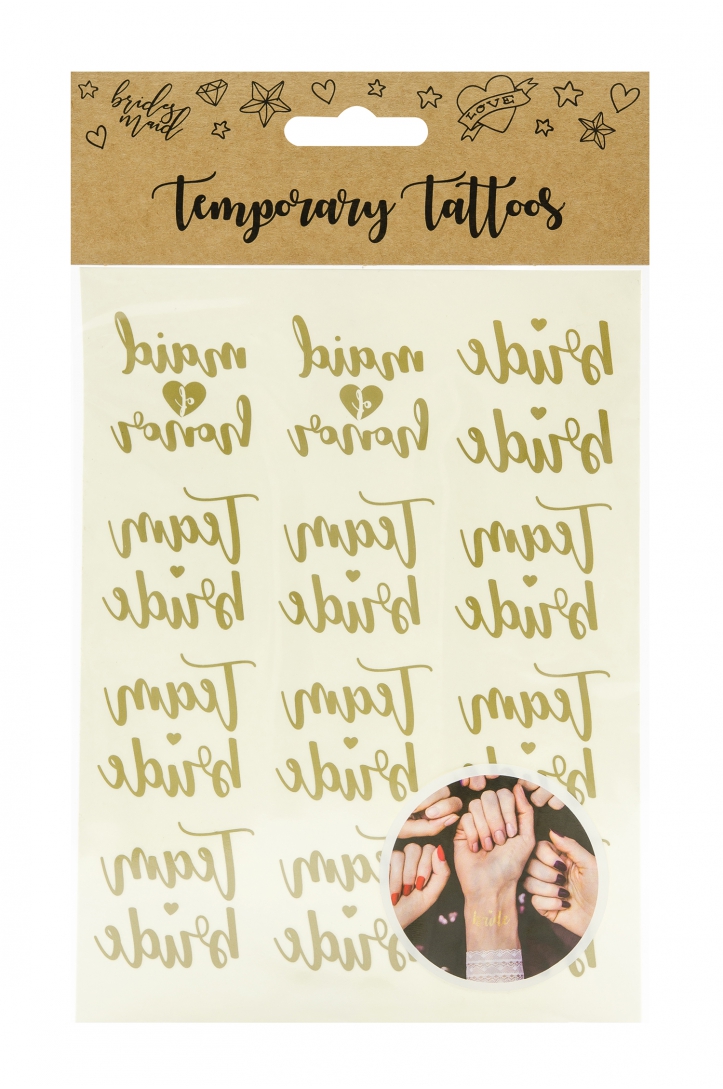 brides
maid
LOVE
Temporary Tattoos
maid
of
honor
maid
of
honor
bride
bride
Team
bride
Team
bride
Team
bride
Team
bride
Team
bride
Team
bride
Team
bride
Team
bride
bride